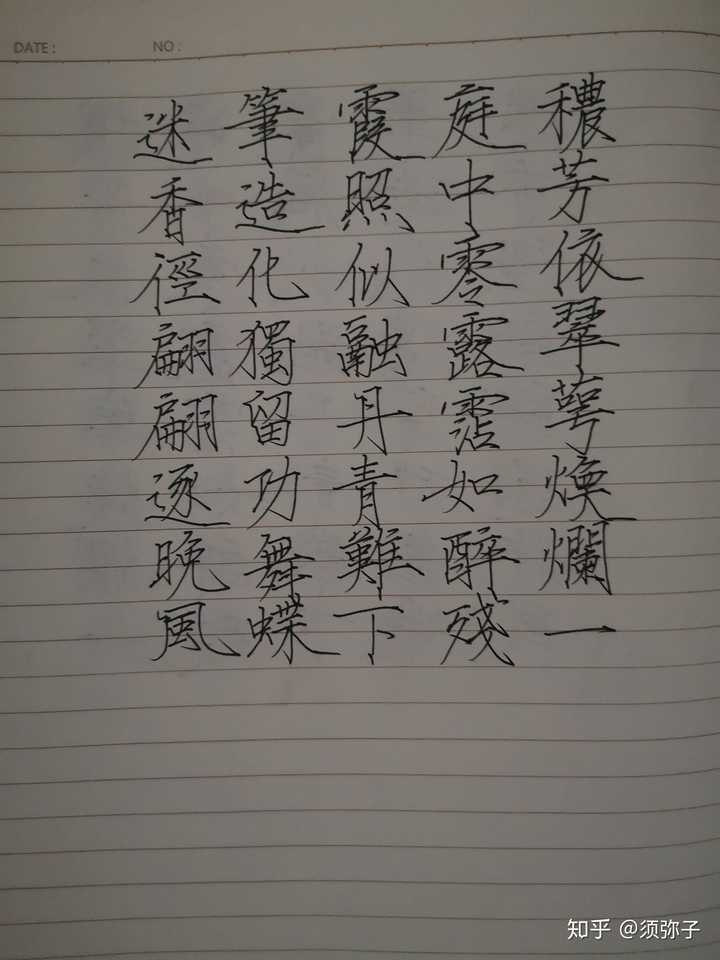 DATE:
NO:
穠芳依翠萼煥爛一
庭中零露霑如醉殘
霞照似融丹青難下
筆造化獨留功舞蝶
迷香徑翩翩逐晚風
知乎 @须弥子